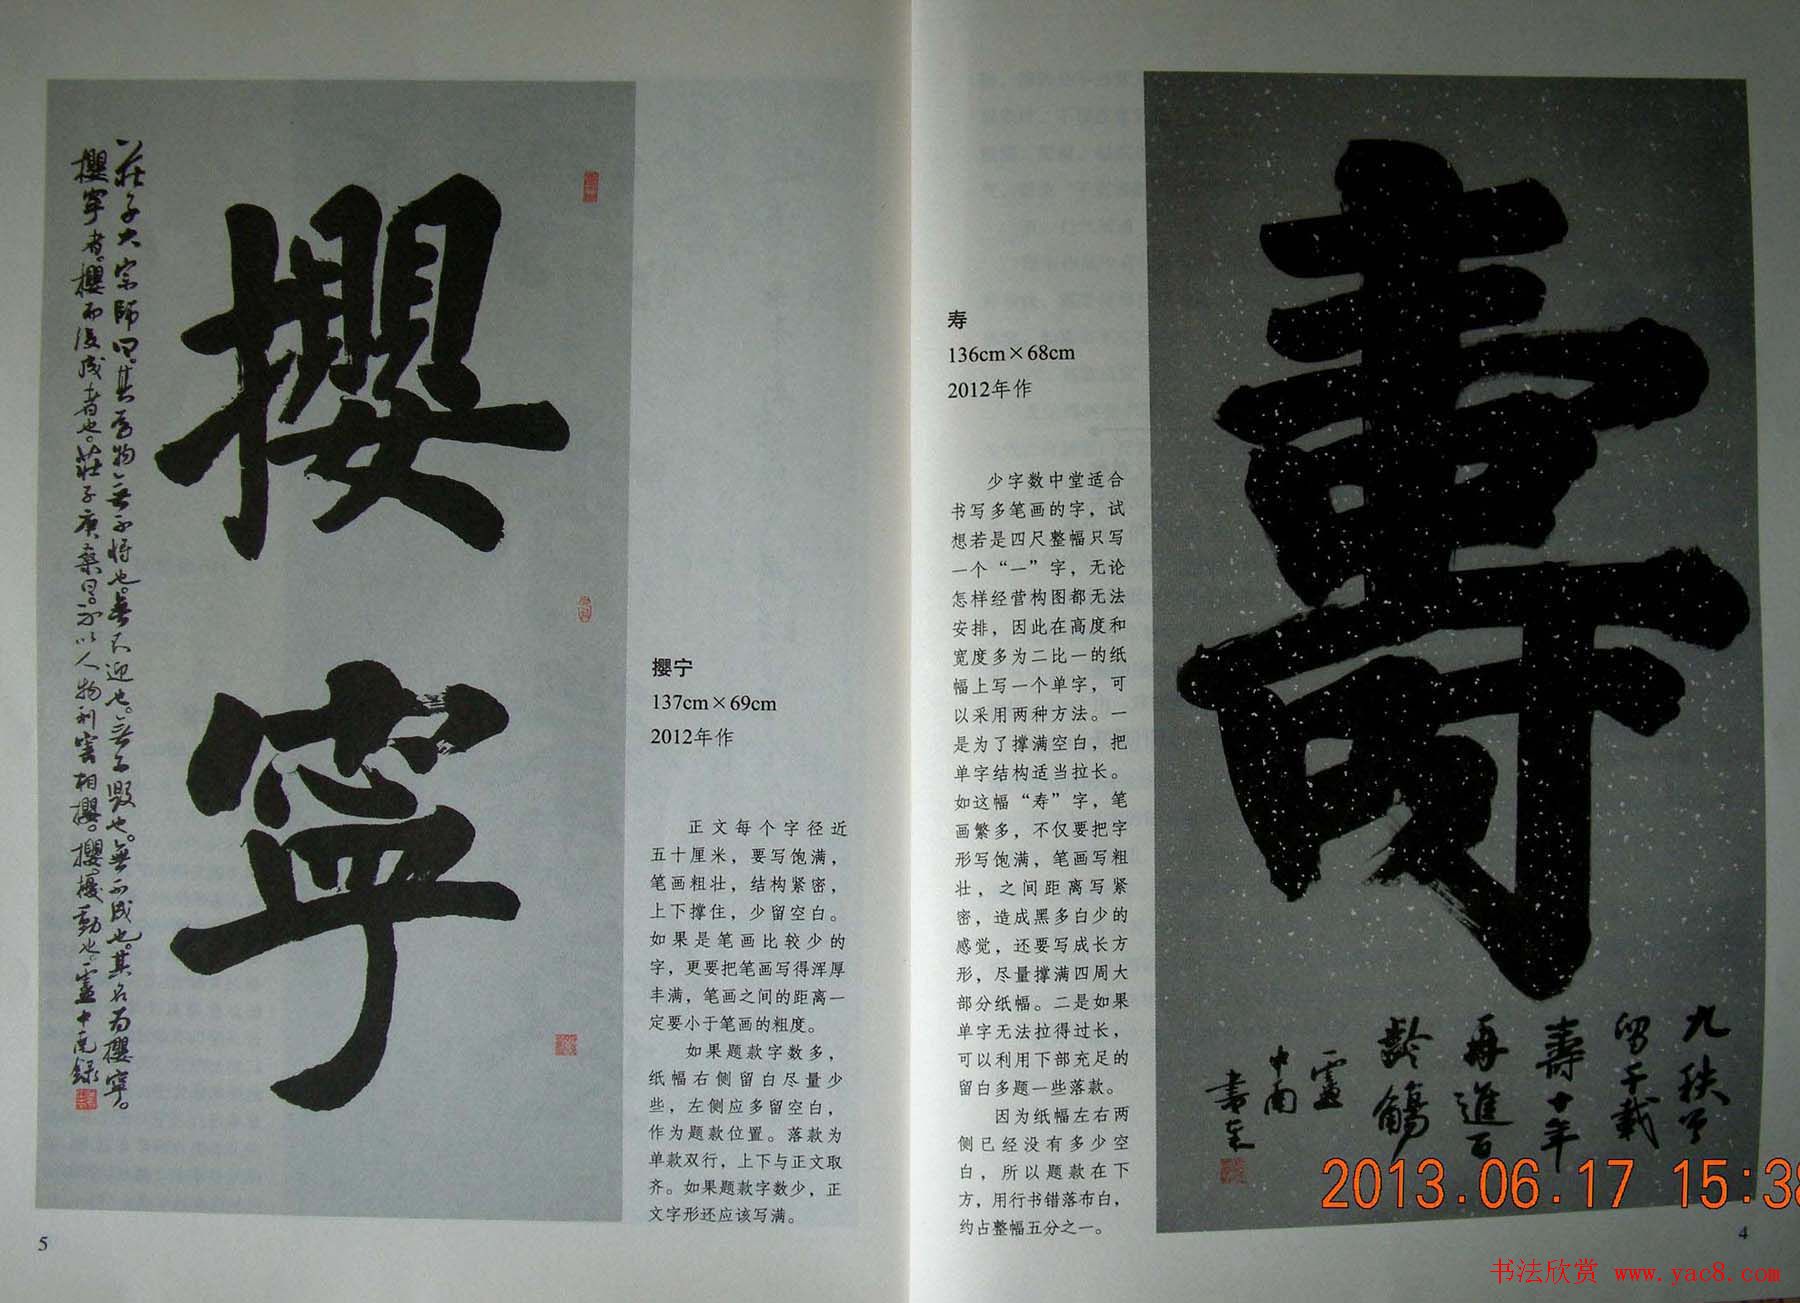 壽
九秩曾
留千載
壽十年
再進百
齡觴
盧
中南
書
寿
136cm×68cm
2012年作
少字数中堂适合
书写多笔画的字，试
想若是四尺整幅只写
一个“一”字，无论
怎样经营构图都无法
安排，因此在高度和
宽度多为二比一的纸
幅上写一个单字，可
以采用两种方法。一
是为了撑满空白，把
单字结构适当拉长。
如这幅“寿”字，笔
画繁多，不仅要把字
形写饱满，笔画写粗
壮，之间距离写紧
密，造成黑多白少的
感觉，还要写成长方
形，尽量撑满四周大
部分纸幅。二是如果
单字无法拉得过长，
可以利用下部充足的
留白多题一些落款。
因为纸幅左右两
侧已经没有多少空
白，所以题款在下
方，用行书错落布白，
约占整幅五分之一。
4
攖寧
莊子大宗師曰。其為物無不將也。無不迎也。無不毀也。無不成也。其名為攖寧。
攖寧者。攖而後成者也。莊子庚桑曰。不以人物利害相攖。攖擾動也。盧中南錄
撄宁
137cm×69cm
2012年作
正文每个字径近
五十厘米，要写饱满，
笔画粗壮，结构紧密，
上下撑住，少留空白。
如果是笔画比较少的
字，更要把笔画写得浑厚
丰满，笔画之间的距离一
定要小于笔画的粗度。
如果题款字数多，
纸幅右侧留白尽量少
些，左侧应多留空白，
作为题款位置。落款为
单款双行，上下与正文取
齐。如果题款字数少，正
文字形还应该写满。
5
2013.06.17 15:38
书法欣赏 www.yac8.com